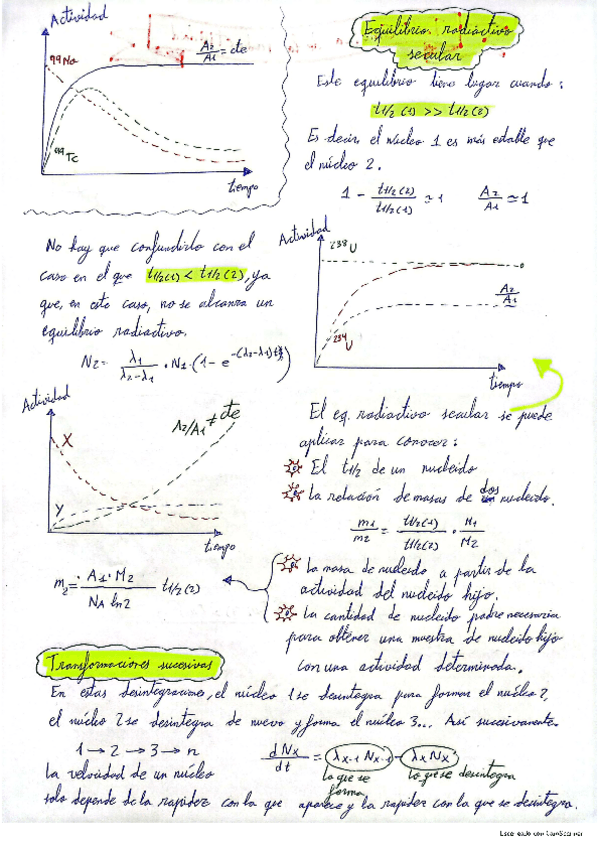 Actividad
A2/A1 = cte
99Mo
99Tc
tiempo
Equilibrio radiactivo
secular
Este equilibrio tiene lugar cuando:
t1/2 (1) >> t1/2(2)
Es decir, el núcleo 1 es más estable que
el núcleo 2.
1 - t1/2(2)/t1/2(1) ≃ 1   A2/A1 ≃ 1
No hay que confundirlo con el
caso en el que t1/2(1) < t1/2(2), ya
que, en este caso, no se alcanza un
equilibrio radiactivo.
N2 = λ1/(λ2-λ1) · N1 · (1 - e^-(λ2-λ1)t)
Actividad
238U
A2/A1
234U
tiempo
Actividad
A2/A1 ≠ cte
X
Y
tiempo
El eq. radiactivo secular se puede
aplicar para conocer:
El t1/2 de un nucleido
La relación de masas de dos nucleido.
m1/m2 = t1/2(1)/t1/2(2) · M1/M2
La masa de nucleido a partir de la
actividad del nucleido hijo.
La cantidad de nucleido padre necesaria
para obtener una muestra de nucleido hijo
con una actividad determinada.
m2 = A1·M2/NA ln2 t1/2(2)
Transformaciones sucesivas
En estas desintegraciones, el núcleo 1 se desintegra para formar el núcleo 2,
el núcleo 2 se desintegra de nuevo y forma el núcleo 3... Así sucesivamente.
1 → 2 → 3 → n
dNx/dt = λx-1 Nx-1 - λx Nx
lo que se forma
lo que se desintegra
La velocidad de un núcleo
solo depende de la rapidez con la que aparece y la rapidez con la que se desintegra.
Escaneado con CamScanner